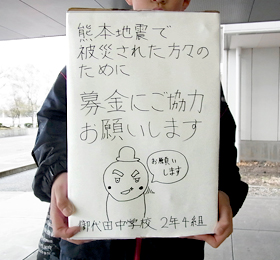 熊本地震で
被災された方々の
ために
募金にご協力
お願いします
お願い
します
御代田中学校 2年4組